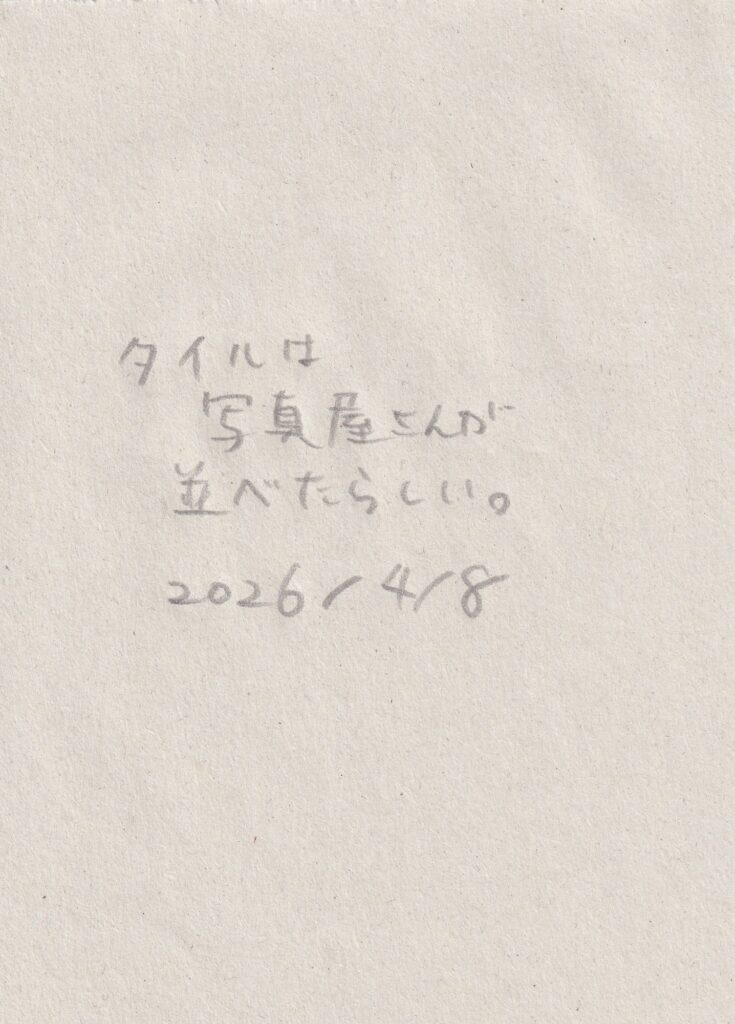 タイルは
写真屋さんが
並べたらしい。
2026/4/8